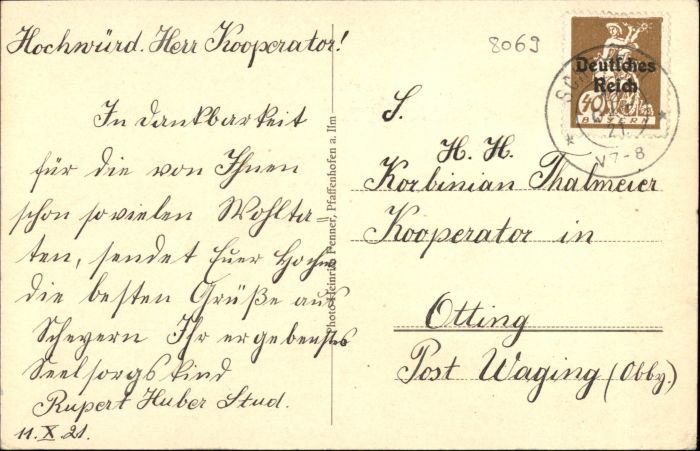 8069
Hochwürd. Herr Kooperator!
In Dankbarkeit
für die von Ihnen
schon sovielen Wohlta=
ten, sendet Euer Hochw
die besten Grüße aus
Scheyern Ihr ergebenstes
Seelsorgskind
Rupert Huber Stud.
11.X.21.
Photo Heinrich Penner, Pfaffenhofen a. Ilm
Deutsches
Reich
40
BAYERN
21
V7-8
S.
H. H.
Korbinian Thalmeier
Kooperator in
Otting
Post Waging (Obby.)